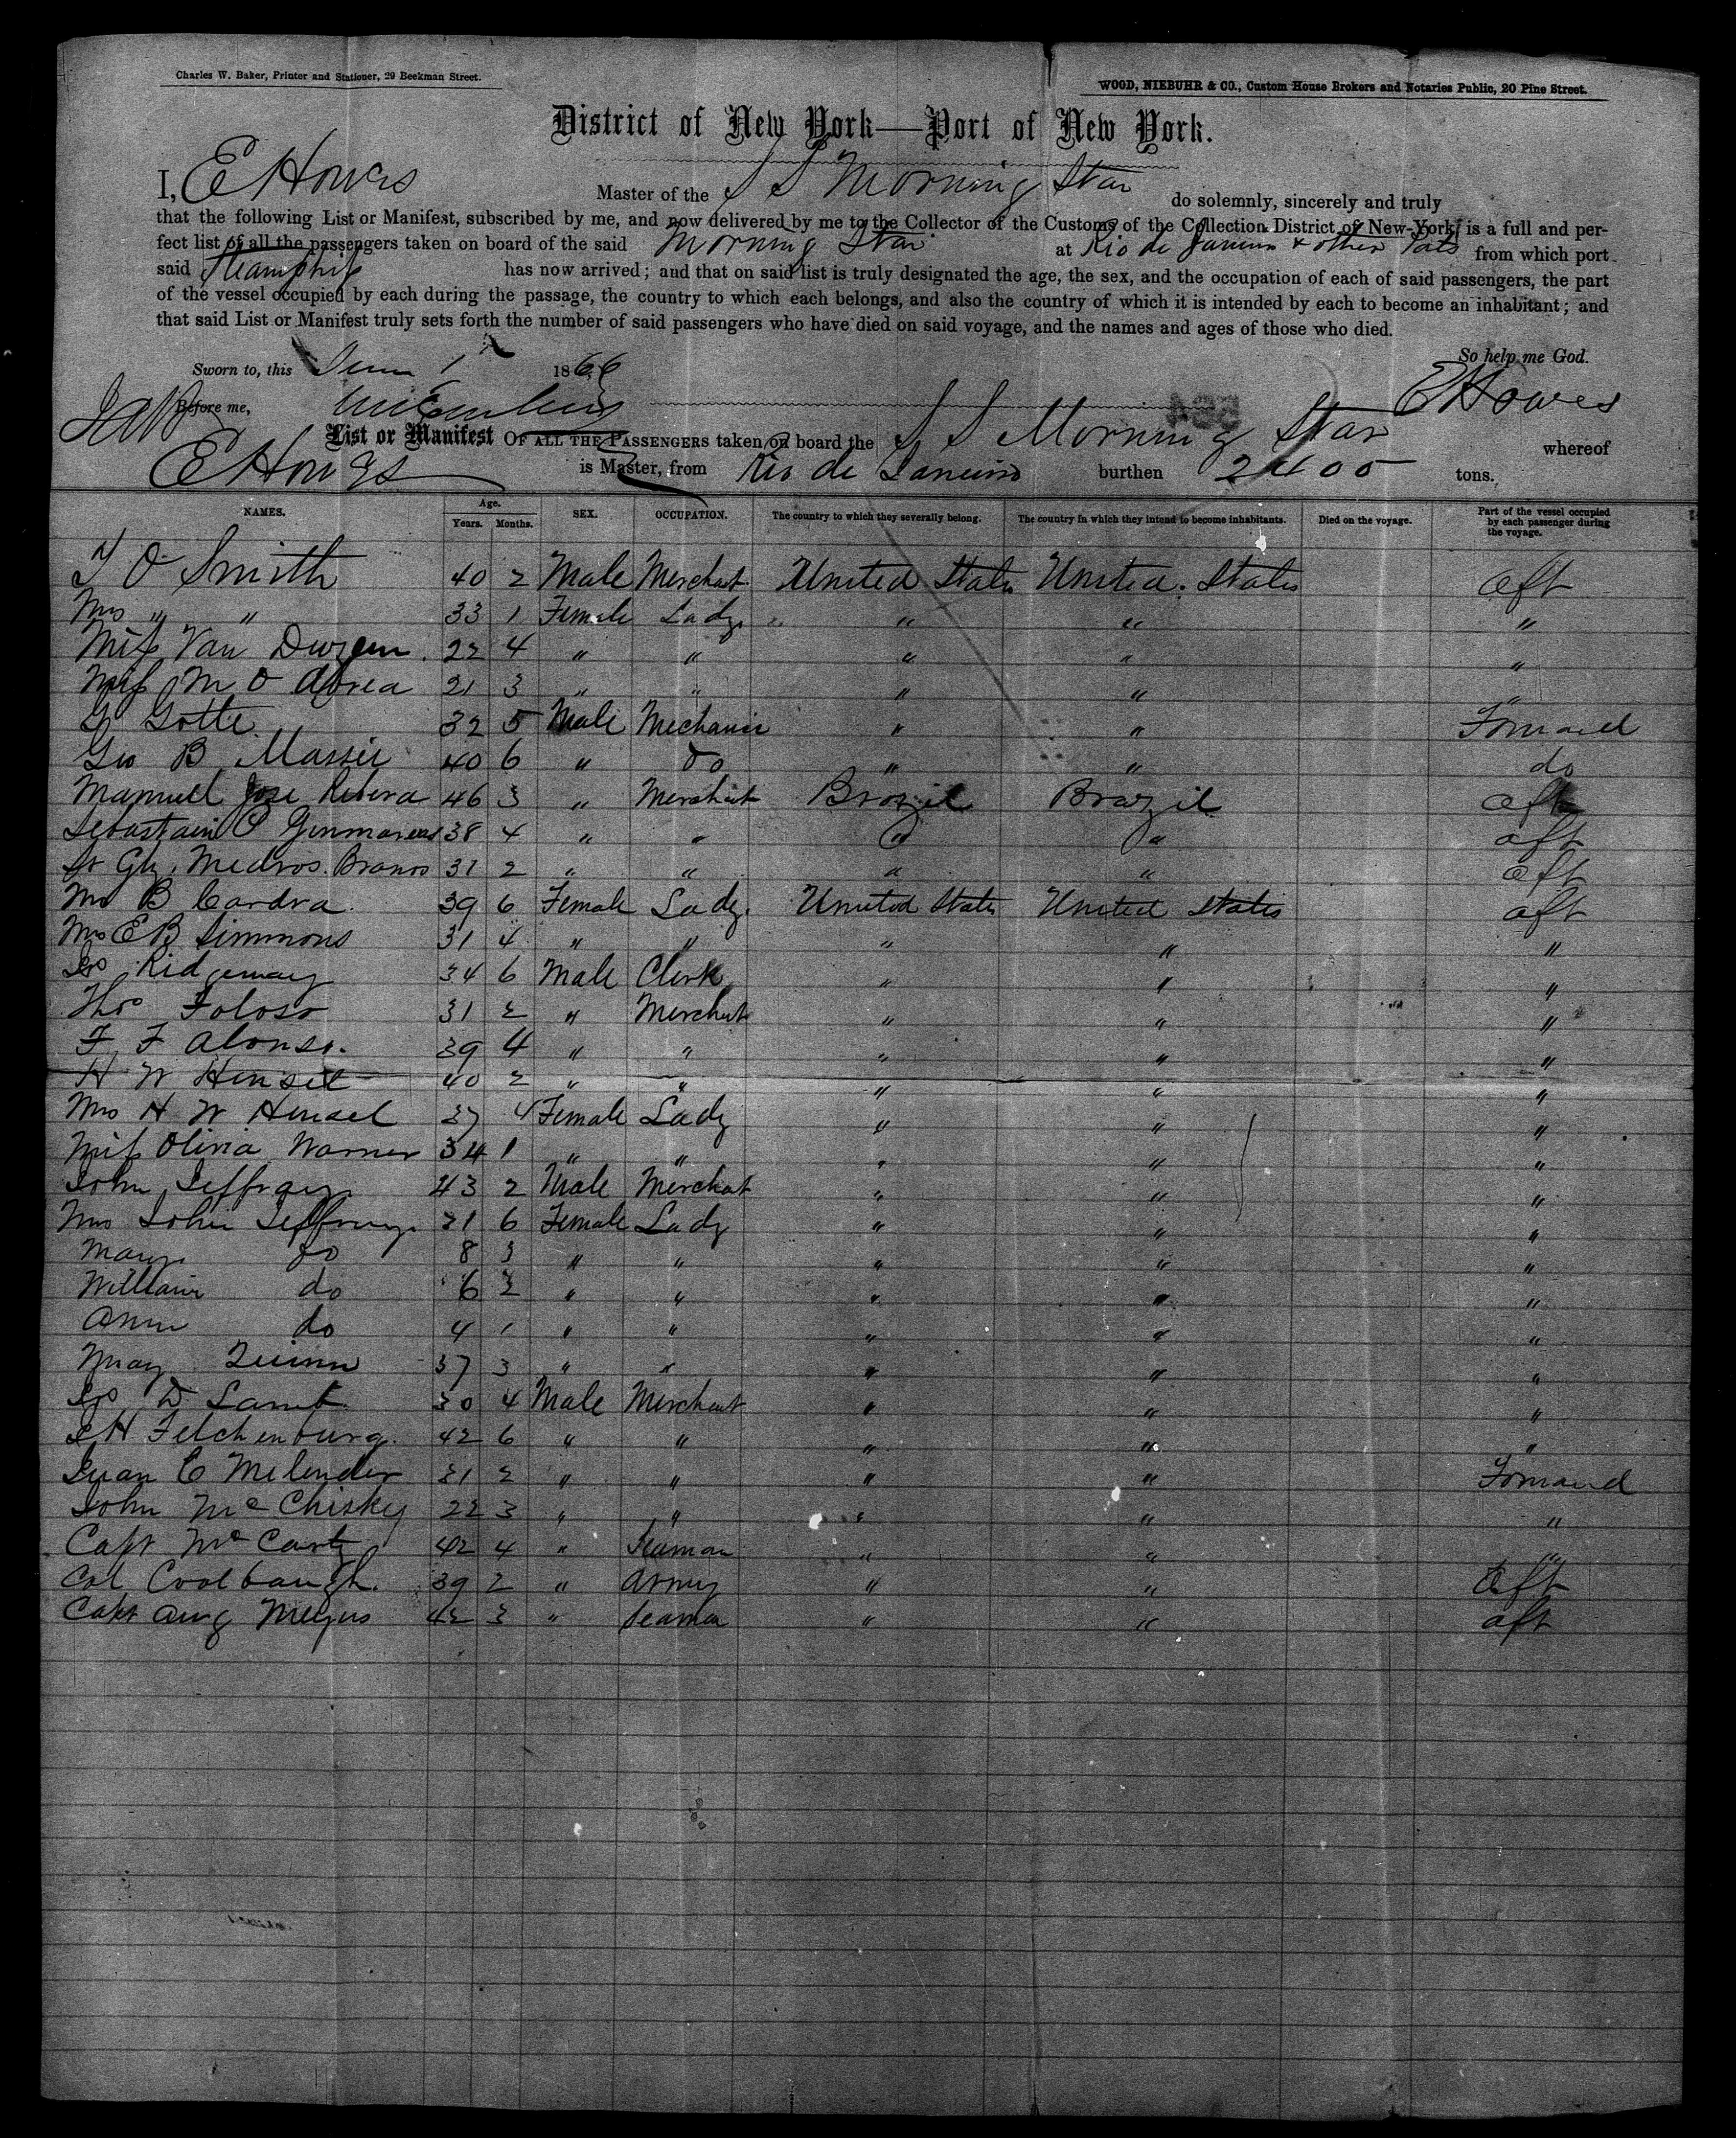 Charles W. Baker, Printer and Stationer, 29 Beekman Street.
WOOD, NIEBUHR & CO., Custom House Brokers and Notaries Public, 20 Pine Street.
District of New York—Port of New York.
I, E Howes Master of the S S Morning Star do solemnly, sincerely and truly
that the following List or Manifest, subscribed by me, and now delivered by me to the Collector of the Customs of the Collection District of New-York, is a full and per-
fect list of all the passengers taken on board of the said Morning Star at Rio de Janeiro & other Ports from which port
said Steamship has now arrived; and that on said list is truly designated the age, the sex, and the occupation of each of said passengers, the part
of the vessel occupied by each during the passage, the country to which each belongs, and also the country of which it is intended by each to become an inhabitant; and
that said List or Manifest truly sets forth the number of said passengers who have died on said voyage, and the names and ages of those who died.
So help me God.
Sworn to, this June 1 1866
E Howes
Before me,
List or Manifest OF ALL THE PASSENGERS taken on board the S S Morning Star whereof
E Howes is Master, from Rio de Janeiro burthen 2400 tons.
NAMES. Age. Years. Months. SEX. OCCUPATION. The country to which they severally belong. The country in which they intend to become inhabitants. Died on the voyage. Part of the vessel occupied by each passenger during the voyage.
Smith 40 2 Male Merchant United States United States aft
Mrs " " 33 1 Female Lady " " "
Miss Van Duzen 22 4 " " " " "
Miss M O 21 3 " " " " "
Gotte 32 5 Male Mechanic " " Forward
Geo B Massie 40 6 " Do " " do
Manuel Jose Ribera 46 3 " Merchant Brazil Brazil aft
38 4 " " " " aft
Medros 31 2 " " " " aft
Mrs B Cardra 39 6 Female Lady United States United States aft
Mrs E B Simmons 31 4 " " " " "
Ridgeway 34 6 Male Clerk " " "
Thos Foloso 31 2 " Merchant " " "
F F Alonso 39 4 " " " " "
H W Hensel 40 2 " " " " "
Mrs H W Hensel 37 4 Female Lady " " "
Miss Olivia Warner 34 1 " " " " "
John Jeffray 43 2 Male Merchant " " "
Mrs John Jeffray 31 6 Female Lady " " "
Mary do 8 3 " " " " "
William do 6 2 " " " " "
Ann do 4 1 " " " " "
Mary Quinn 37 3 " " " " "
D Lamb 30 4 Male Merchant " " "
H Felchenburg 42 6 " " " " "
Juan C Melender 31 2 " " " " Forward
John McChisky 22 3 " " " " "
Capt McCarty 42 4 " Seaman " " "
Col Coolbaugh 39 2 " Army " " aft
Capt Aug Meyus 42 3 " Seaman " " aft